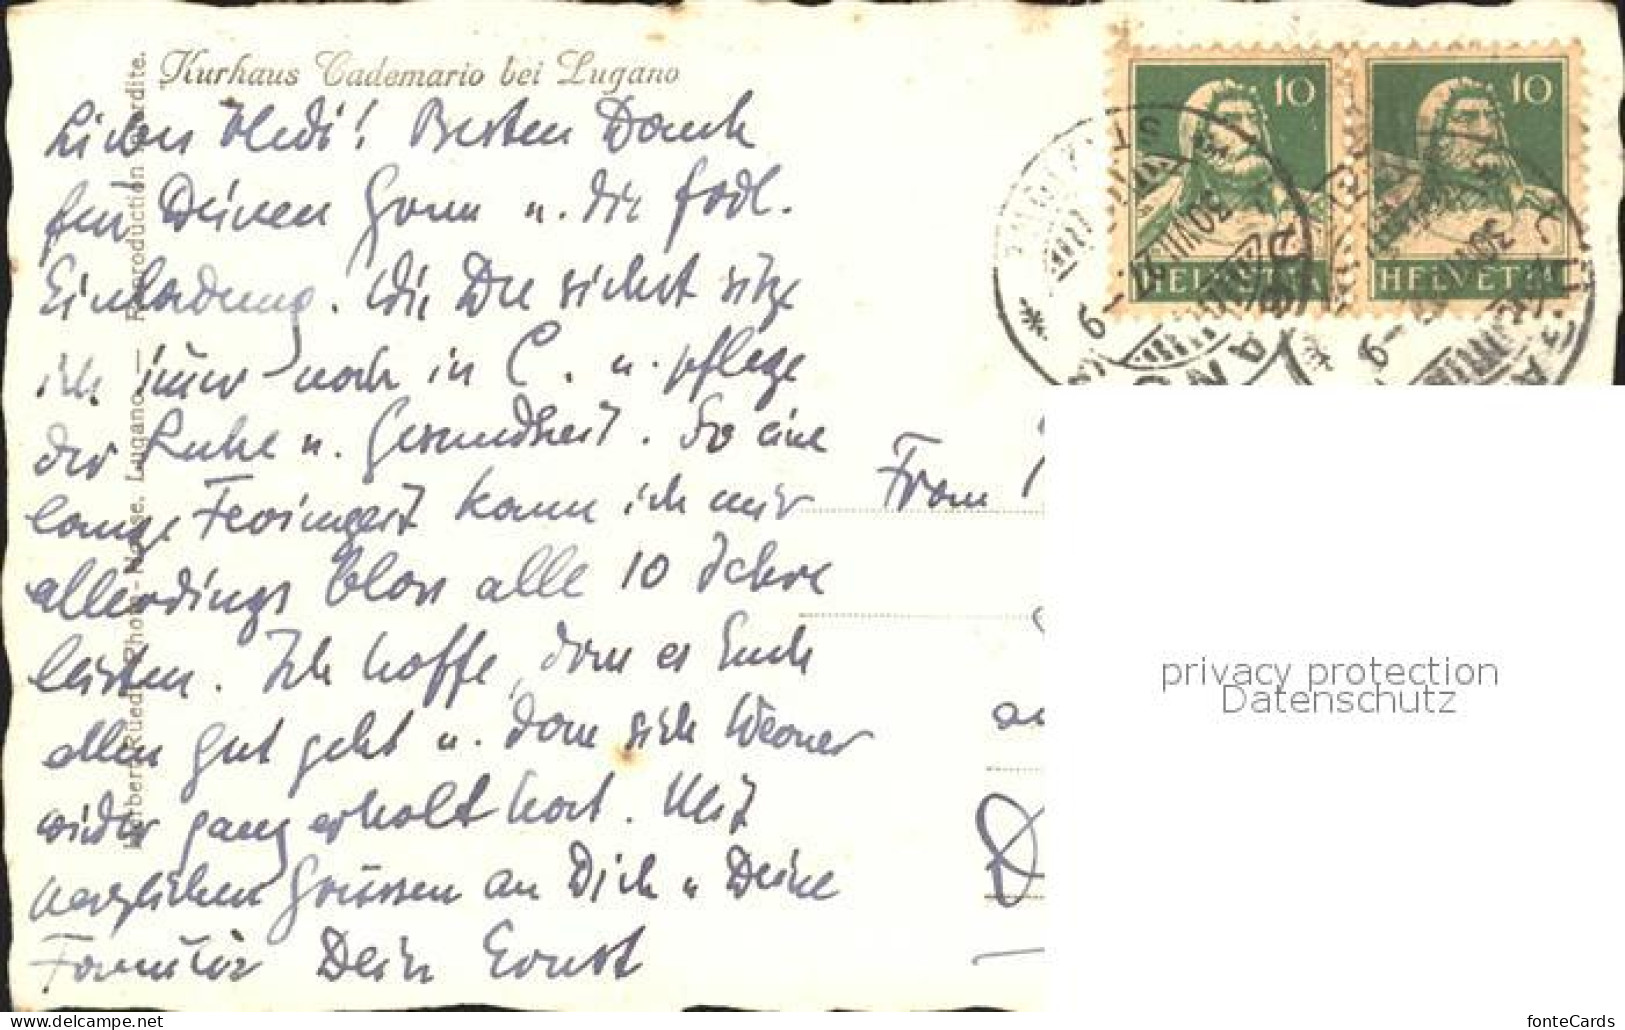 Kurhaus Cademario bei Lugano
Lieber Hedi! Besten Dank
für Deinen Gruss u. die frdl.
Einladung. Wie Du siehst sitze
ich immer noch in C. u. pflege
der Ruhe u. Gesundheit. So eine
lange Ferienzeit kann ich mir
allerdings bloss alle 10 Jahre
leisten. Ich hoffe, dass es Euch
allen gut geht u. dass sich Werner
wieder ganz erholt hat. Mit
herzlichen Grüssen an Dich u Deine
Familie Dein Ernst
Reproduction interdite.
Lugano.
10
HELVETIA
10
HELVETIA
Frau
an
D
privacy protection
Datenschutz
https://www.delcampe.net
fonteCards